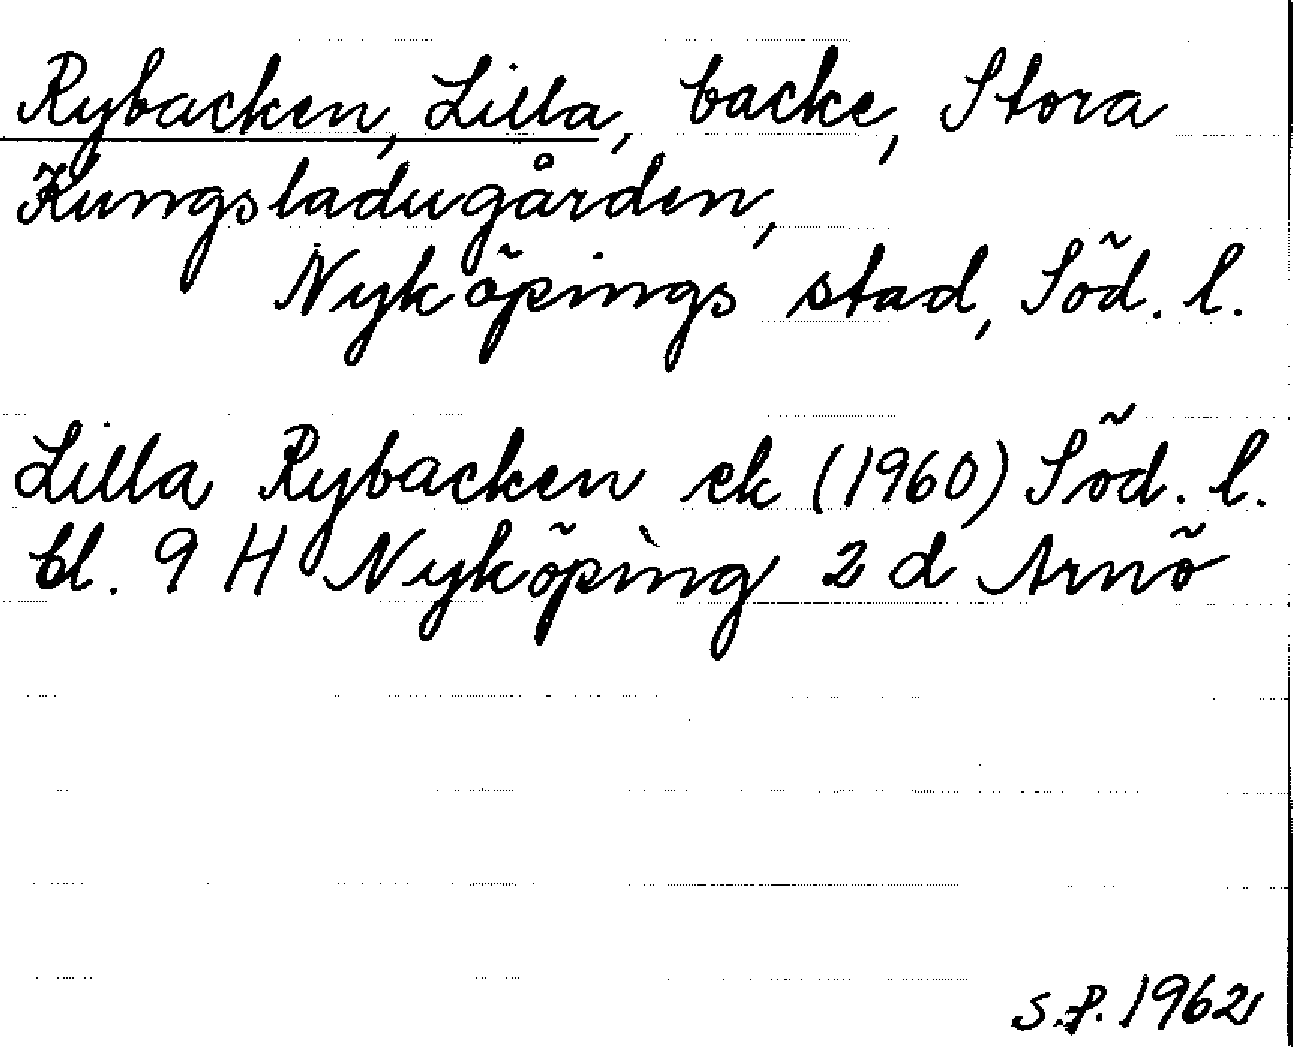 Rybacken, Lilla, backe, Stora
Kungsladugården,
Nyköpings stad, Söd. l.
Lilla Rybacken ek (1960) Söd. l.
bl. 9 H Nyköping 2 d Arnö
S.P. 1962